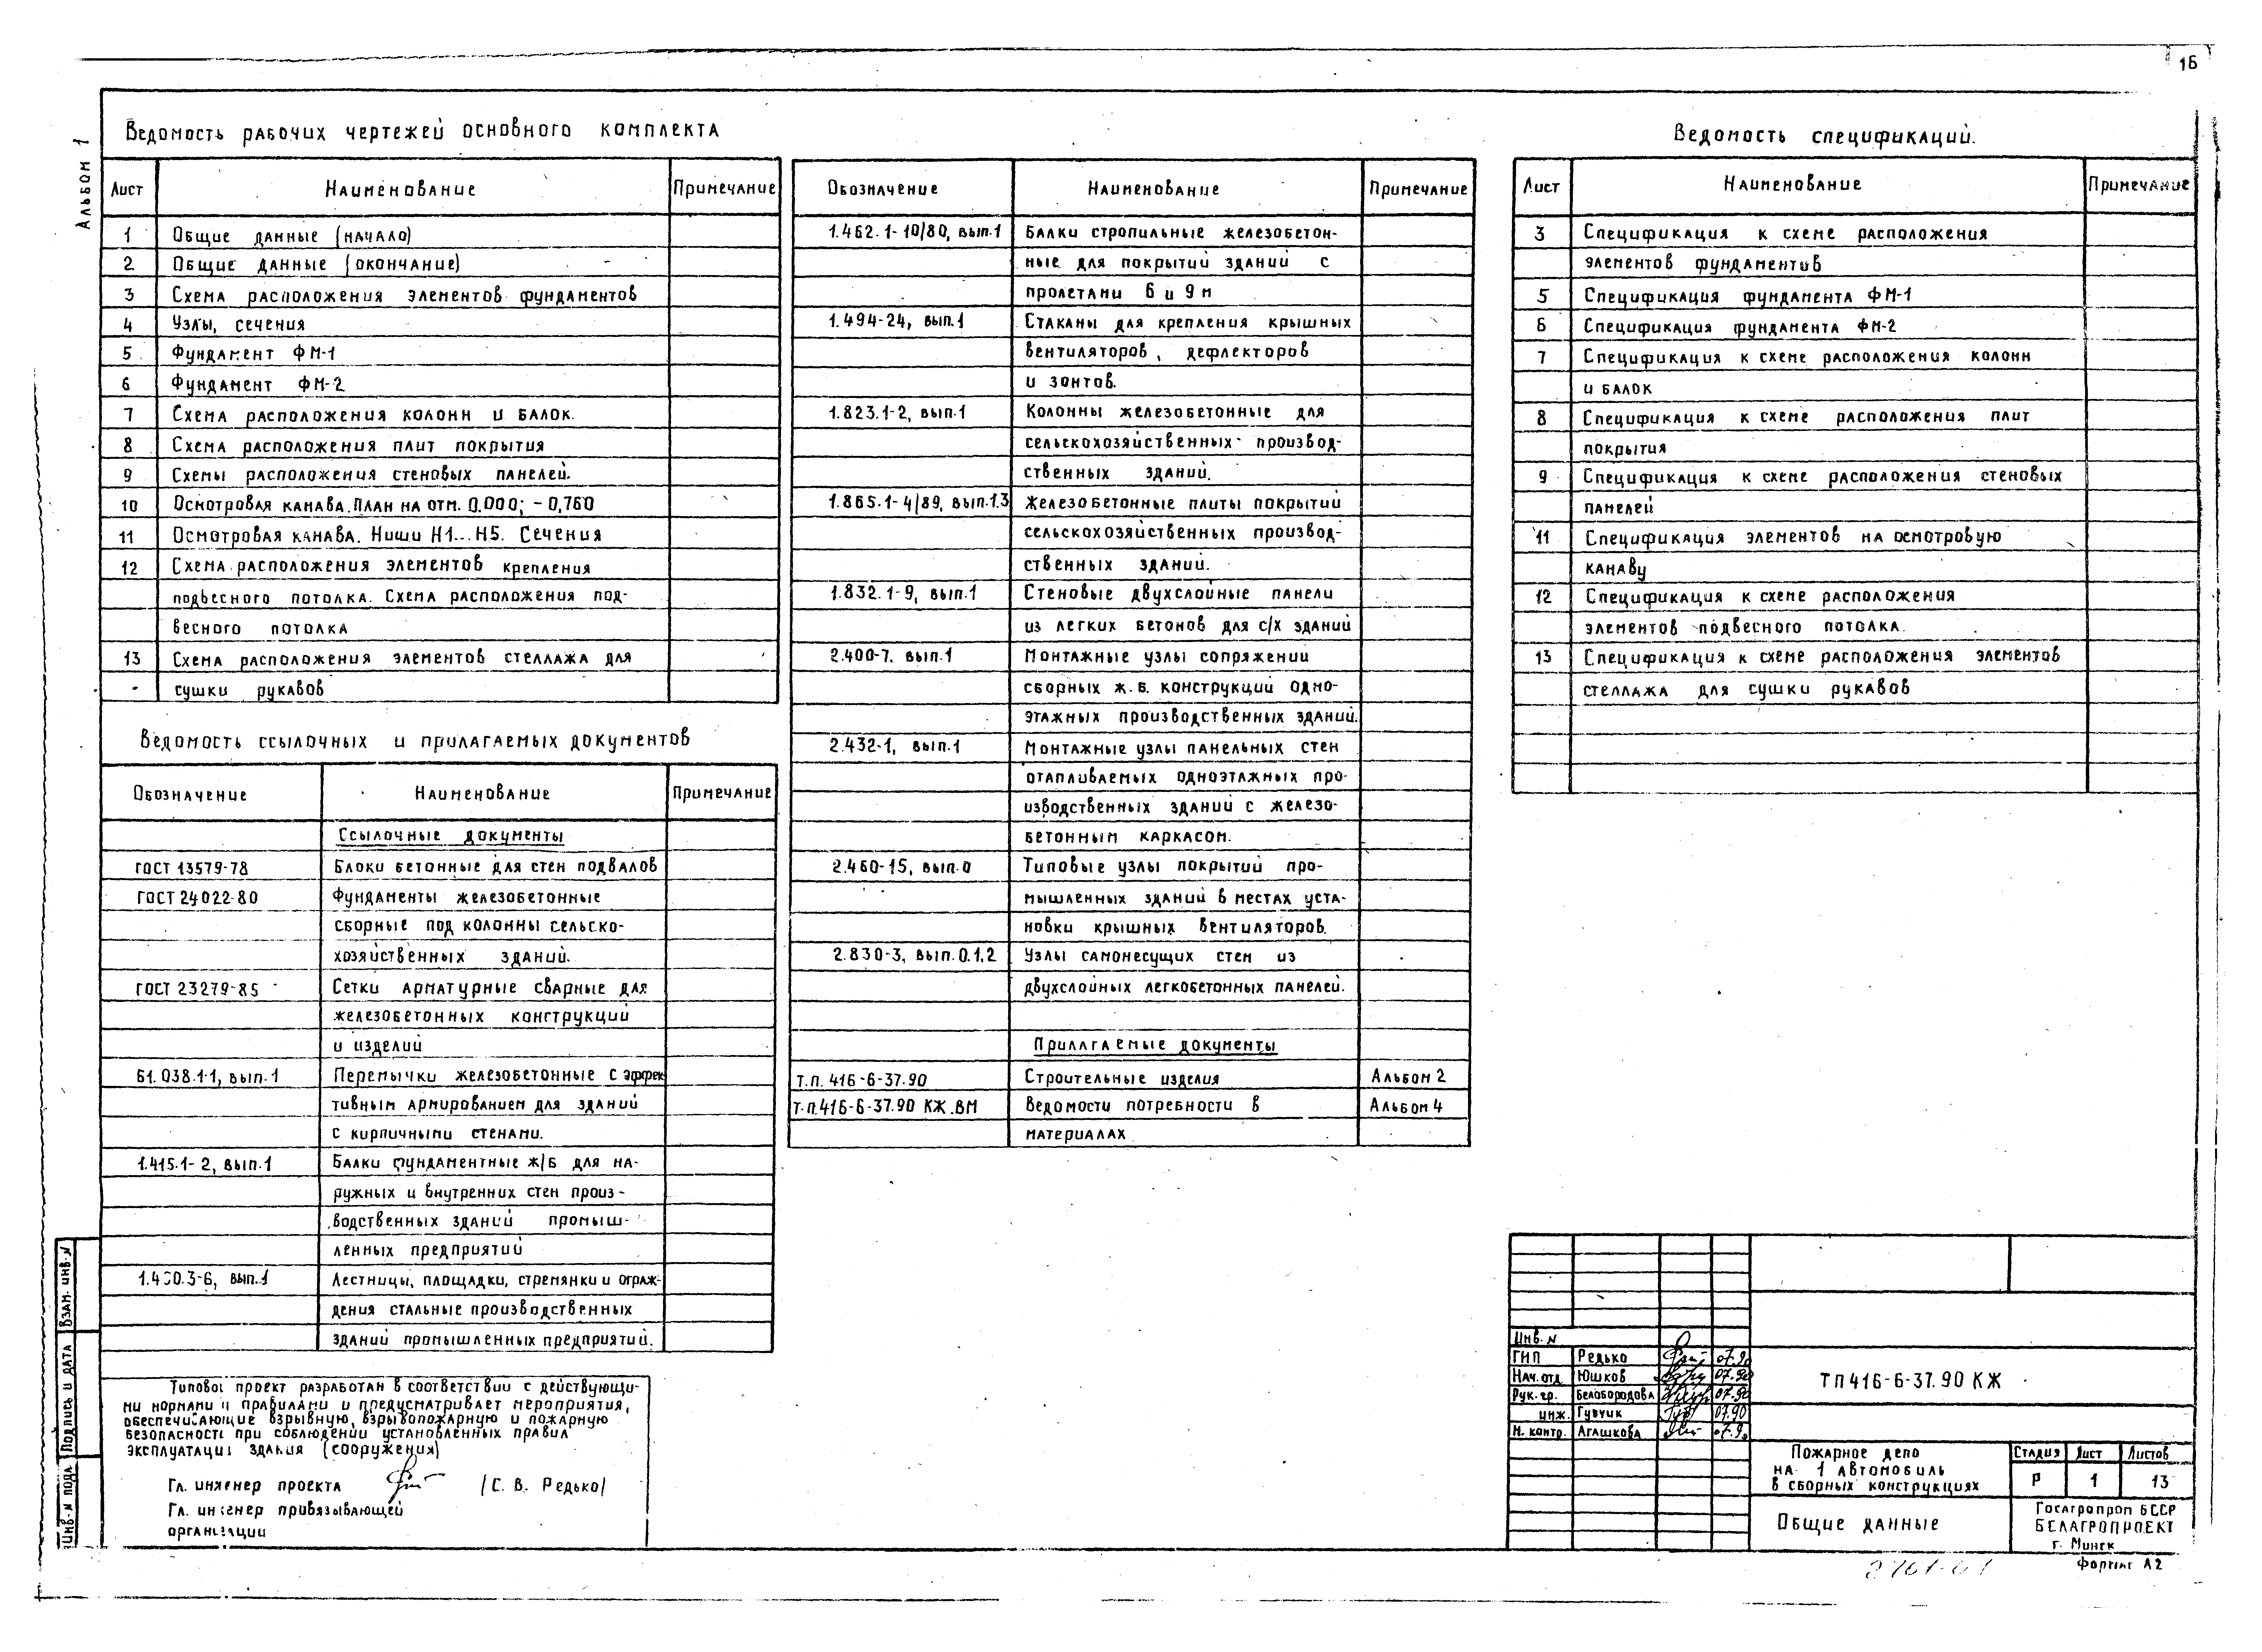 16
Альбом 1
Ведомость рабочих чертежей основного комплекта
Лист Наименование Примечание
1 Общие данные (начало)
2 Общие данные (окончание)
3 Схема расположения элементов фундаментов
4 Узлы, сечения
5 Фундамент ФМ-1
6 Фундамент ФМ-2
7 Схема расположения колонн и балок.
8 Схема расположения плит покрытия
9 Схемы расположения стеновых панелей.
10 Осмотровая канава. План на отм. 0.000; -0,760
11 Осмотровая канава. Ниши Н1...Н5. Сечения
12 Схема расположения элементов крепления
подвесного потолка. Схема расположения под-
весного потолка
13 Схема расположения элементов стеллажа для
сушки рукавов
Ведомость ссылочных и прилагаемых документов
Обозначение Наименование Примечание
Ссылочные документы
ГОСТ 13579-78 Блоки бетонные для стен подвалов
ГОСТ 24022-80 Фундаменты железобетонные
сборные под колонны сельско-
хозяйственных зданий.
ГОСТ 23279-85 Сетки арматурные сварные для
железобетонных конструкций
и изделий
Б1.038.1-1, вып.1 Перемычки железобетонные с эффек
тивным армированием для зданий
с кирпичными стенами.
1.415.1-2, вып.1 Балки фундаментные ж/б для на-
ружных и внутренних стен произ-
водственных зданий промыш-
ленных предприятий
вып.1 Лестницы, площадки, стремянки и ограж-
дения стальные производственных
зданий промышленных предприятий.
Типовой проект разработан в соответствии с действующи-
ми нормами и правилами и предусматривает мероприятия,
обеспечивающие взрывную, взрывопожарную и пожарную
безопасность при соблюдении установленных правил
эксплуатации здания (сооружения)
Гл. инженер проекта (С. В. Редько)
Гл. инженер привязывающей
организации
Обозначение Наименование Примечание
1.462.1-10/80, вып.1 Балки стропильные железобетон-
ные для покрытий зданий с
пролетами 6 и 9 м
1.494-24, вып.1 Стаканы для крепления крышных
вентиляторов, дефлекторов
и зонтов.
1.823.1-2, вып.1 Колонны железобетонные для
сельскохозяйственных производ-
ственных зданий.
1.865.1-4/89, вып.1.3 Железобетонные плиты покрытий
сельскохозяйственных производ-
ственных зданий.
1.832.1-9, вып.1 Стеновые двухслойные панели
из легких бетонов для с/х зданий
2.400-7, вып.1 Монтажные узлы сопряжений
сборных ж.б. конструкций одно-
этажных производственных зданий.
2.432-1, вып.1 Монтажные узлы панельных стен
отапливаемых одноэтажных про-
изводственных зданий с железо-
бетонным каркасом.
2.460-15, вып.0 Типовые узлы покрытий про-
мышленных зданий в местах уста-
новки крышных вентиляторов.
2.830-3, вып.0.1.2 Узлы самонесущих стен из
двухслойных легкобетонных панелей.
Прилагаемые документы
Т.п. 416-6-37.90 Строительные изделия Альбом 2
Т.п.416-6-37.90 КЖ.ВМ Ведомости потребности в Альбом 4
материалах
Ведомость спецификаций.
Лист Наименование Примечание
3 Спецификация к схеме расположения
элементов фундаментов
5 Спецификация фундамента ФМ-1
6 Спецификация фундамента ФМ-2
7 Спецификация к схеме расположения колонн
и балок
8 Спецификация к схеме расположения плит
покрытия
9 Спецификация к схеме расположения стеновых
панелей
11 Спецификация элементов на осмотровую
канаву
12 Спецификация к схеме расположения
элементов подвесного потолка.
13 Спецификация к схеме расположения элементов
стеллажа для сушки рукавов
Инв. N
ГИП Редько 07.90
Нач. отд Юшков 07.90
Рук. гр. Белобородова 07.90
инж. 07.90
Н. контр. Агашкова 07.90
ТП 416-6-37.90 КЖ
Пожарное депо
на 1 автомобиль
в сборных конструкциях
Стадия Лист Листов
Р 1 13
Общие данные
Госагропром БССР
БЕЛАГРОПРОЕКТ
г. Минск
Формат А2
Взам. инв. N
Подпись и дата
Инв. N подл